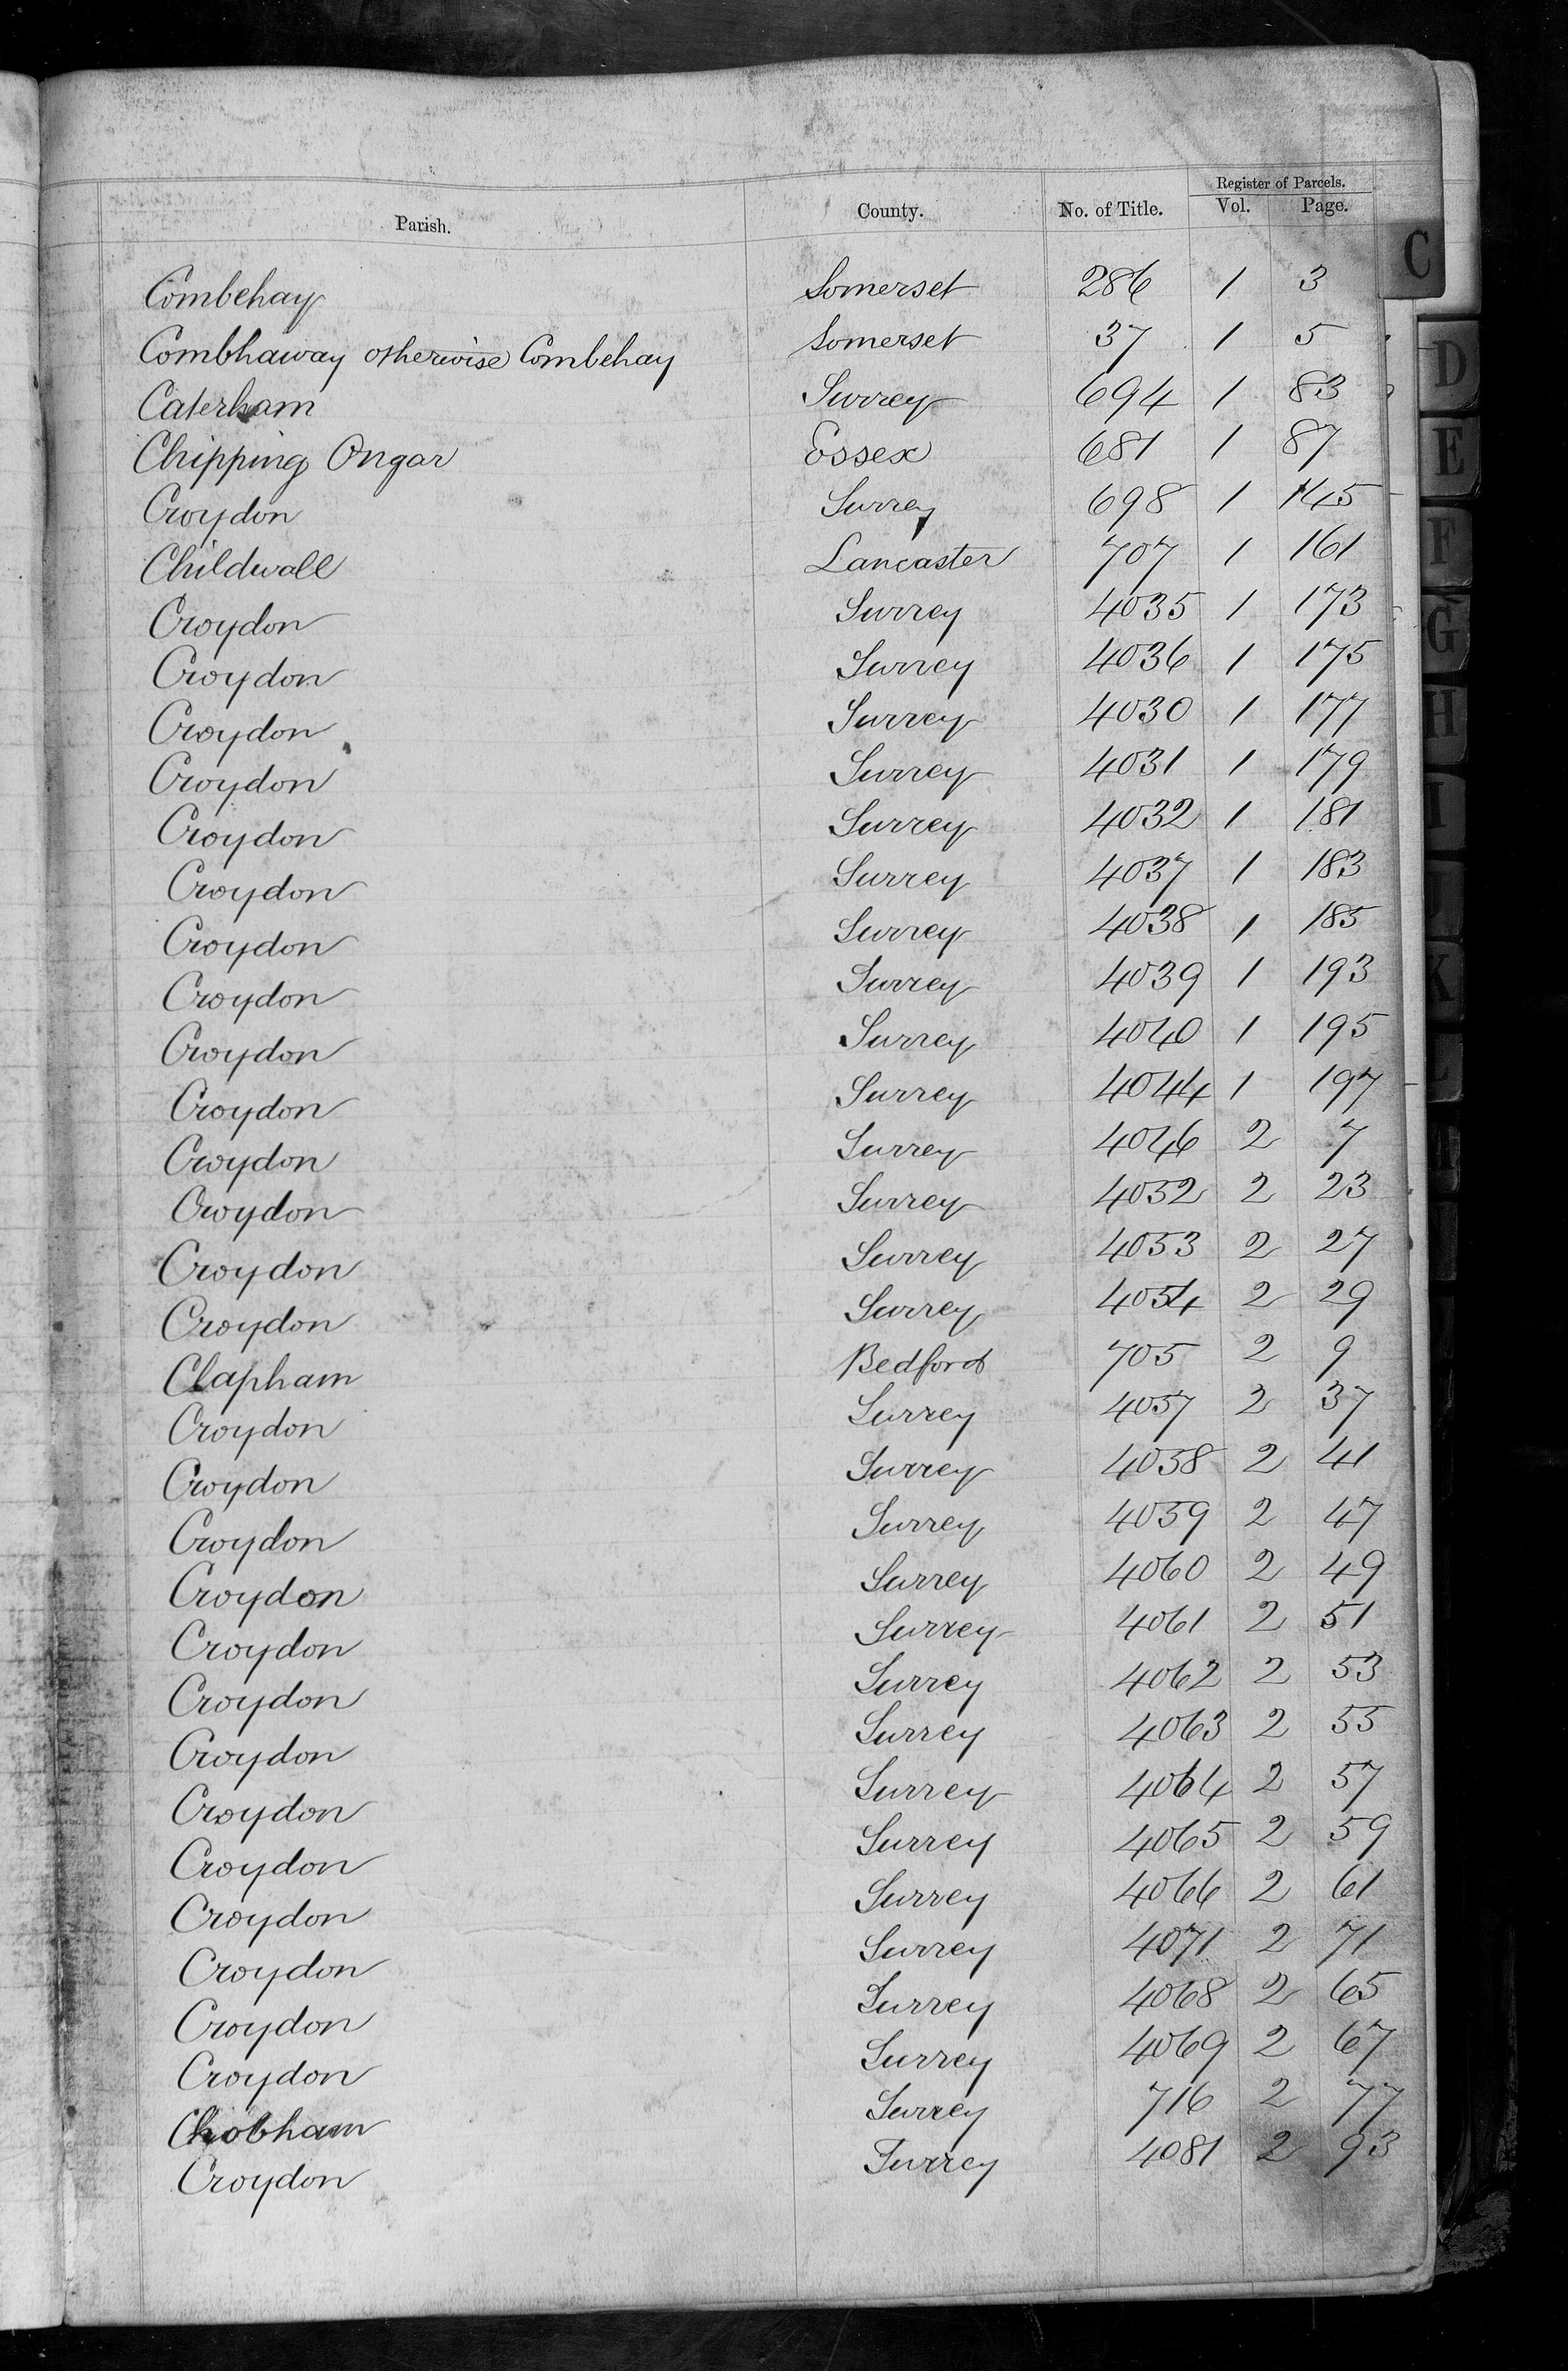 Register of Parcels.
Parish. County. No. of Title. Vol. Page.
Combehay Somerset 286 1 3
Combhaway otherwise Combehay Somerset 37 1 5
Caterham Surrey 694 1 83
Chipping Ongar Essex 681 1 87
Croydon Surrey 698 1 145
Childwall Lancaster 707 1 161
Croydon Surrey 4035 1 173
Croydon Surrey 4036 1 175
Croydon Surrey 4030 1 177
Croydon Surrey 4031 1 179
Croydon Surrey 4032 1 181
Croydon Surrey 4037 1 183
Croydon Surrey 4038 1 185
Croydon Surrey 4039 1 193
Croydon Surrey 4040 1 195
Croydon Surrey 4044 1 197
Croydon Surrey 4046 2 7
Croydon Surrey 4052 2 23
Croydon Surrey 4053 2 27
Croydon Surrey 4054 2 29
Clapham Bedford 705 2 9
Croydon Surrey 4057 2 37
Croydon Surrey 4058 2 41
Croydon Surrey 4059 2 47
Croydon Surrey 4060 2 49
Croydon Surrey 4061 2 51
Croydon Surrey 4062 2 53
Croydon Surrey 4063 2 55
Croydon Surrey 4064 2 57
Croydon Surrey 4065 2 59
Croydon Surrey 4066 2 61
Croydon Surrey 4071 2 71
Croydon Surrey 4068 2 65
Croydon Surrey 4069 2 67
Chobham Surrey 716 2 77
Croydon Surrey 4081 2 93
C
D
E
F
G
H
I
K